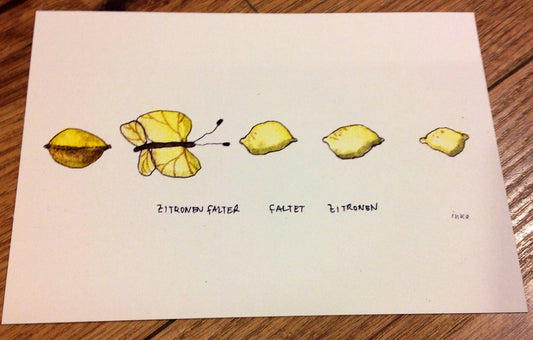 ZITRONENFALTER FALTET ZITRONEN
inka